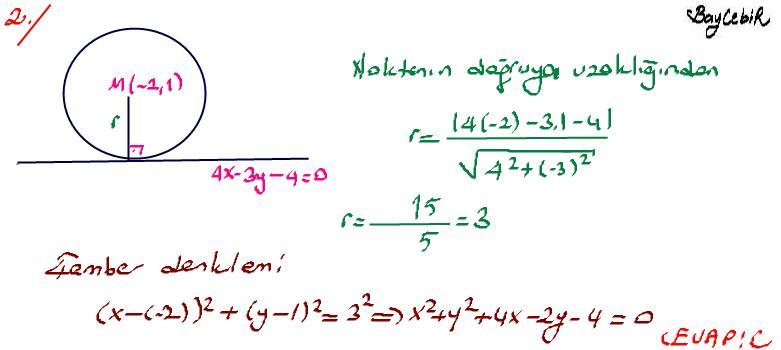 2./
BayCebir
M(-2,1)
r
4x-3y-4=0
Noktanın doğruya uzaklığından
r= |4(-2)-3.1-4| / √4²+(-3)²
r= 15/5 =3
Çember denklemi
(x-(-2))²+(y-1)²=3²⇒x²+y²+4x-2y-4=0
CEVAP:C